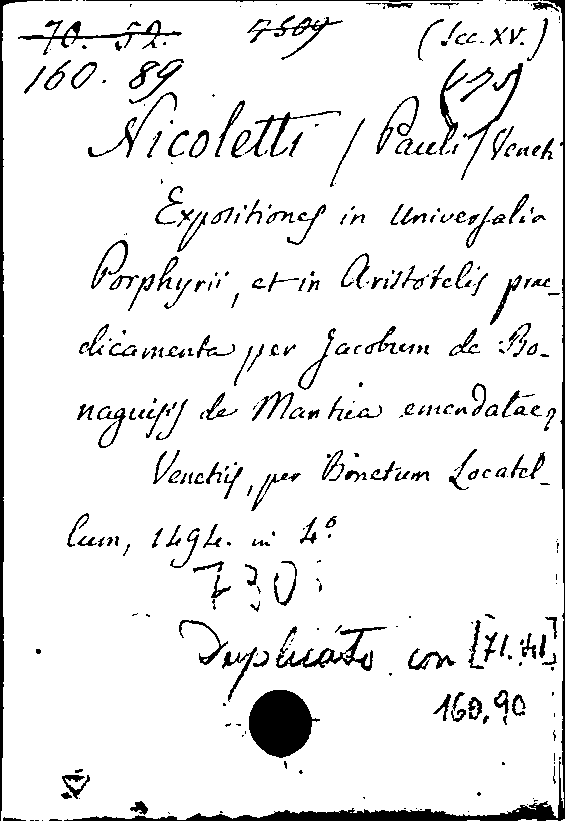 70. 52. 7509 (Sec. XV.)
160. 89 (175)
Nicoletti (Pauli) Veneti
Expositiones in Universalia
Porphyrii, et in Aristotelis prae-
dicamenta per Jacobum de Bo-
naguisis de Mantua emendatae,
Venetiis, per Bonetum Locatel-
lum, 1494. in 4.°
730
Duplicato con [71.41]
160,90